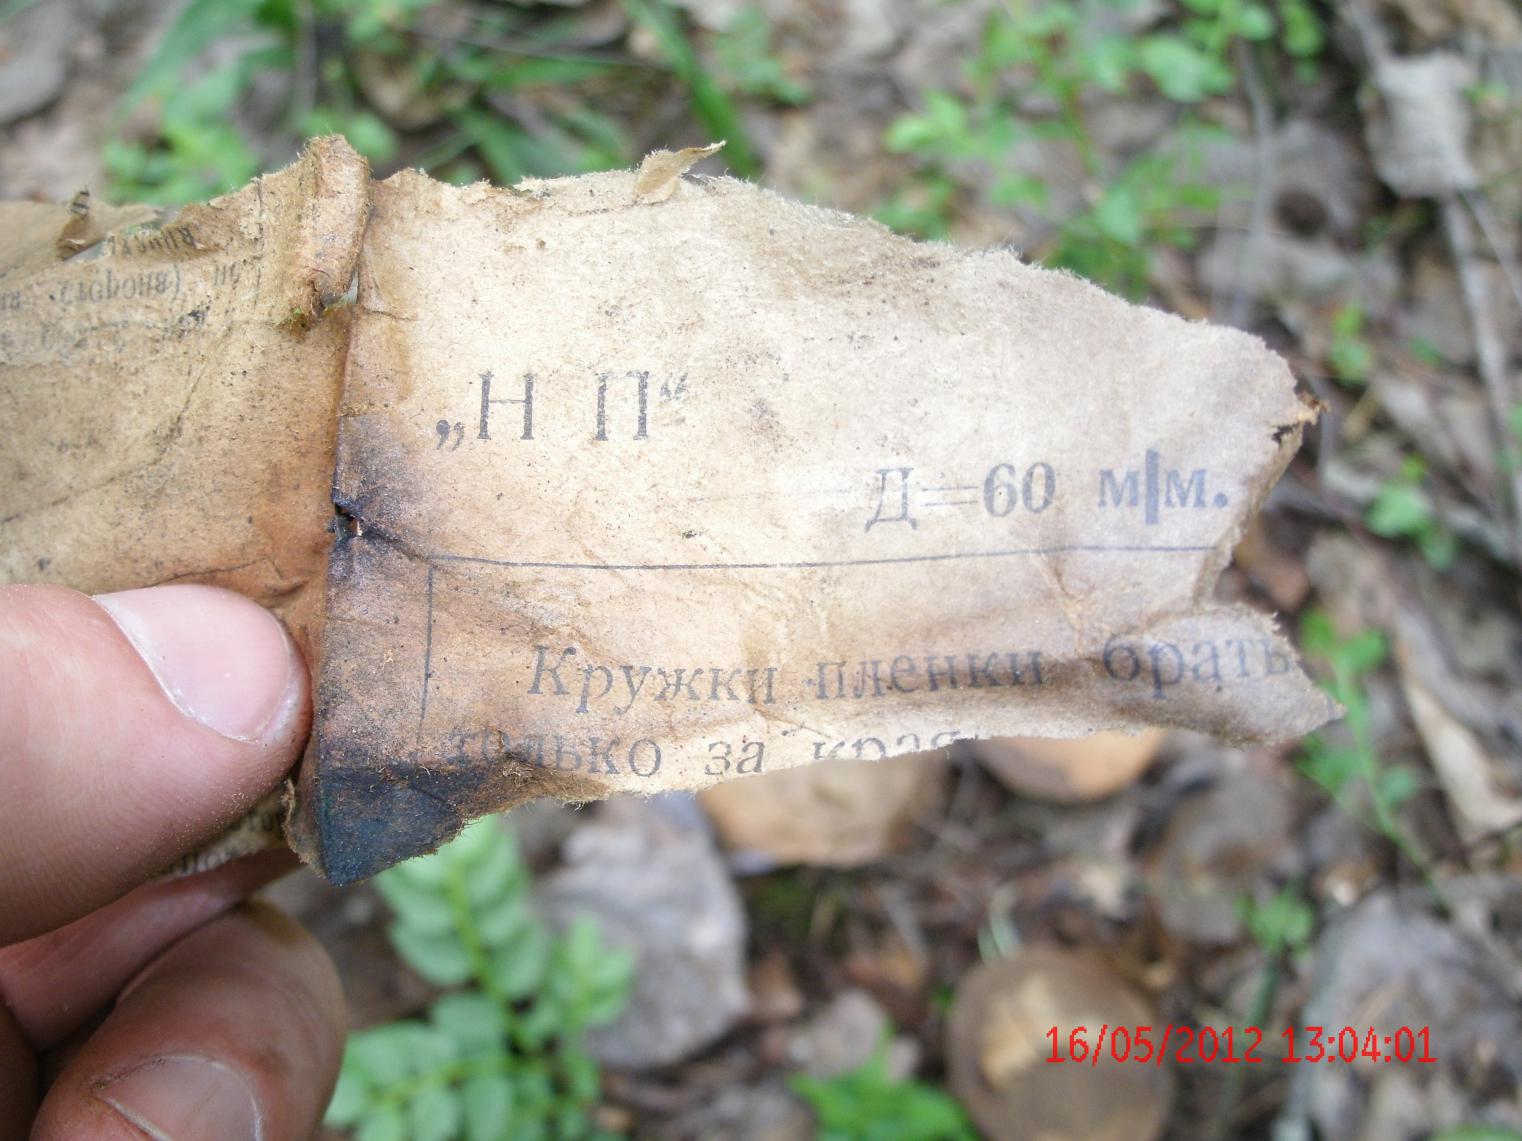 „Н П“
Д=60 м/м.
Кружки пленки брать
только за края
16/05/2012 13:04:01